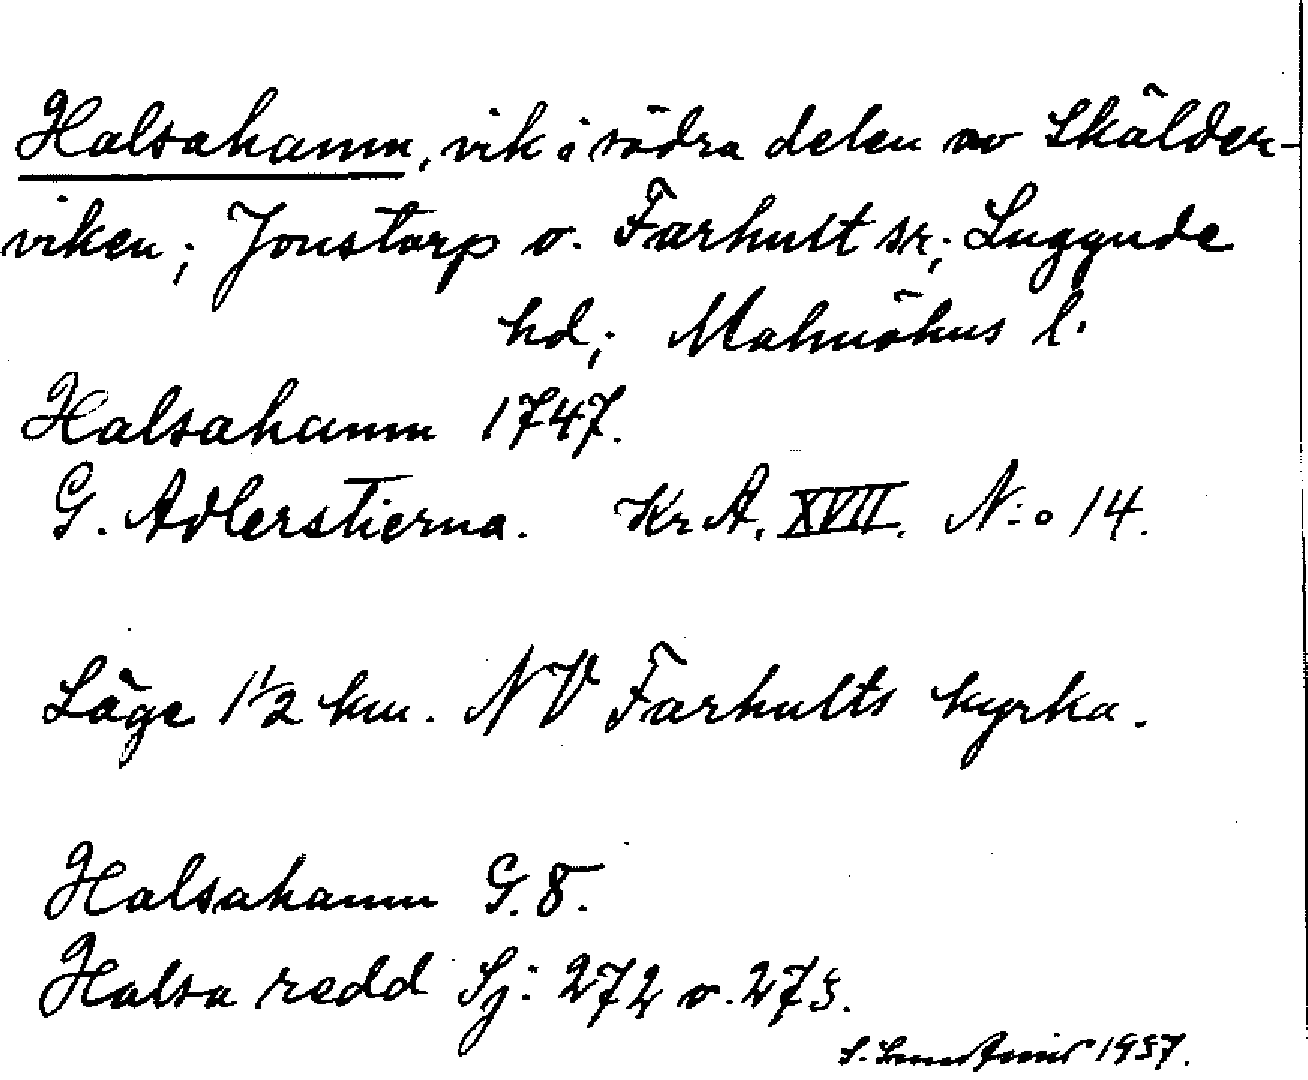 Halsahamn, vik i södra delen av Skälder-
viken; Jonstorp o. Farhult sr; Luggude
hd; Malmöhus l.
Halsahamn 1747.
G. Adlerstierna. Kr A. XVII. N:o 14.
Läge 1 1/2 km. NV Farhults kyrka.
Halsahamn G. 8.
Halsa redd Sj: 272 o. 273.
1937.